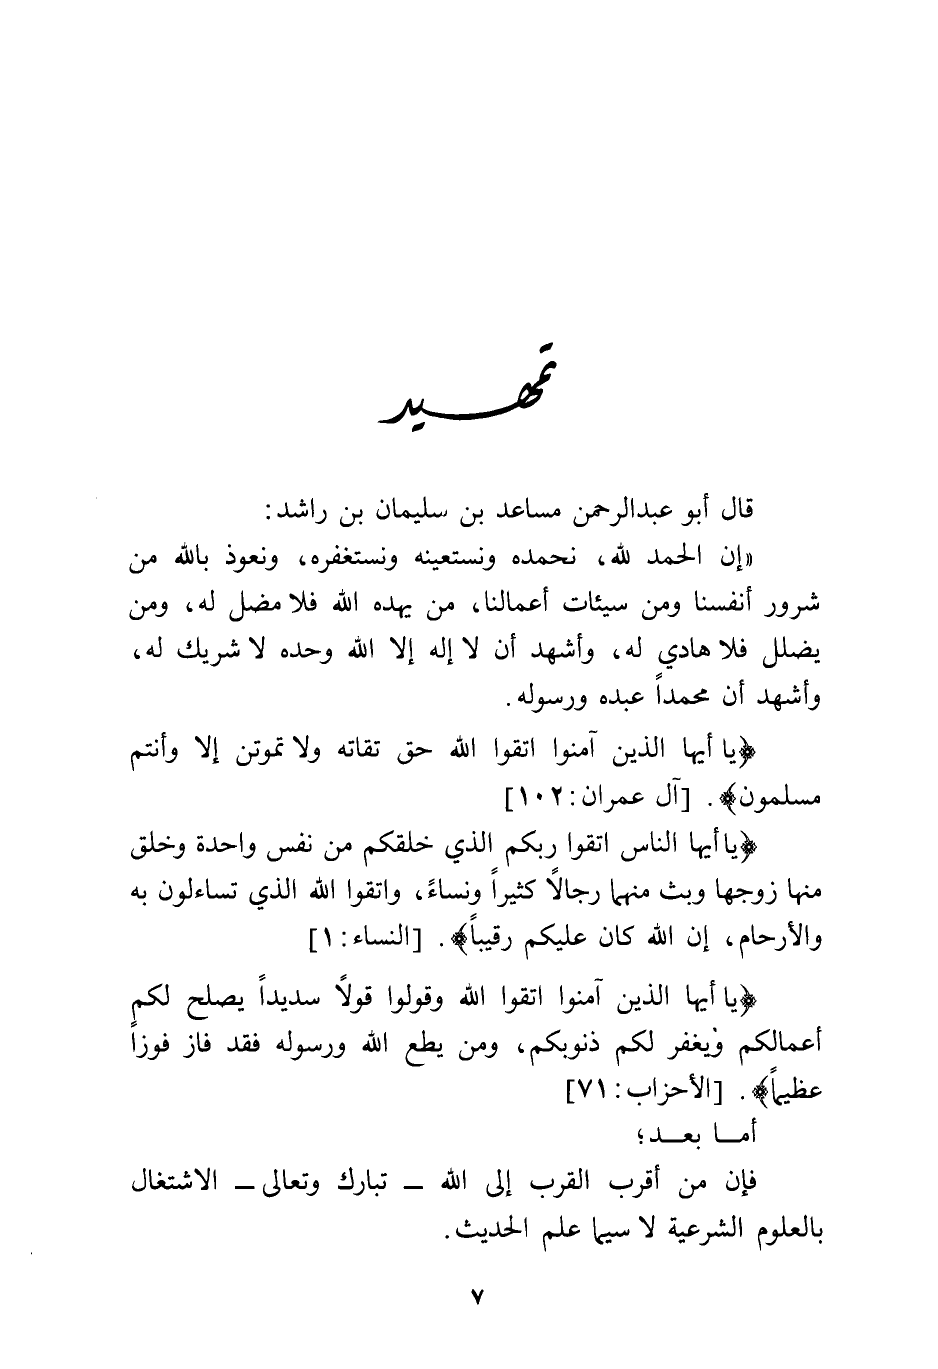 تمهيد
قال أبو عبدالرحمن مساعد بن سليمان بن راشد:
«إن الحمد لله، نحمده ونستعينه ونستغفره، ونعوذ بالله من
شرور أنفسنا ومن سيئات أعمالنا، من يهده الله فلا مضل له، ومن
يضلل فلا هادي له، وأشهد أن لا إله إلا الله وحده لا شريك له،
وأشهد أن محمداً عبده ورسوله.
﴿يا أيها الذين آمنوا اتقوا الله حق تقاته ولا تموتن إلا وأنتم
مسلمون﴾. [آل عمران: ١٠٢]
﴿يا أيها الناس اتقوا ربكم الذي خلقكم من نفس واحدة وخلق
منها زوجها وبث منهما رجالاً كثيراً ونساءً، واتقوا الله الذي تساءلون به
والأرحام، إن الله كان عليكم رقيباً﴾. [النساء: ١]
﴿يا أيها الذين آمنوا اتقوا الله وقولوا قولاً سديداً يصلح لكم
أعمالكم ويغفر لكم ذنوبكم، ومن يطع الله ورسوله فقد فاز فوزاً
عظيماً﴾. [الأحزاب: ٧١]
أمــا بعــد؛
فإن من أقرب القرب إلى الله ــ تبارك وتعالى ــ الاشتغال
بالعلوم الشرعية لا سيما علم الحديث.
٧